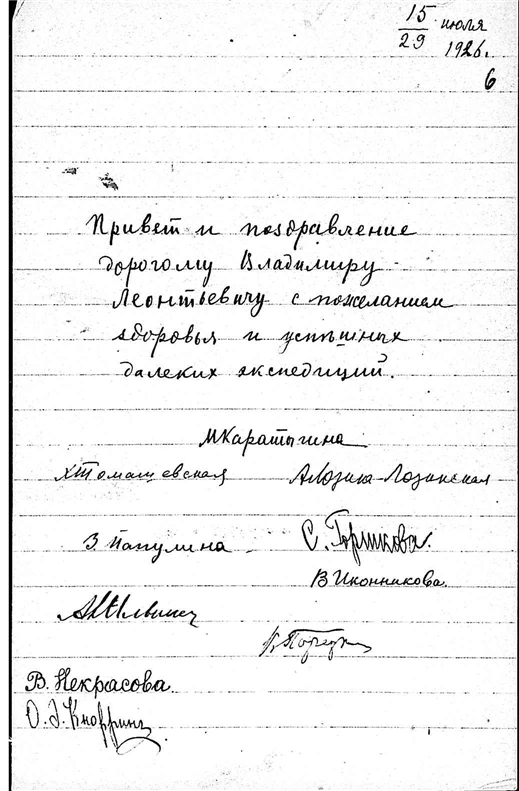 15/29 июля
1926г.
6
Привет и поздравление
дорогому Владимиру
Леонтьевичу с пожеланием
здоровья и успѣшных
далеких экспедиций.
МКаратыгина
ХТомашевская АЛозина-Лозинская
З. Папулина С. Горшкова.
В Иконникова.
В. Некрасова.
О. Э. Кнорринг